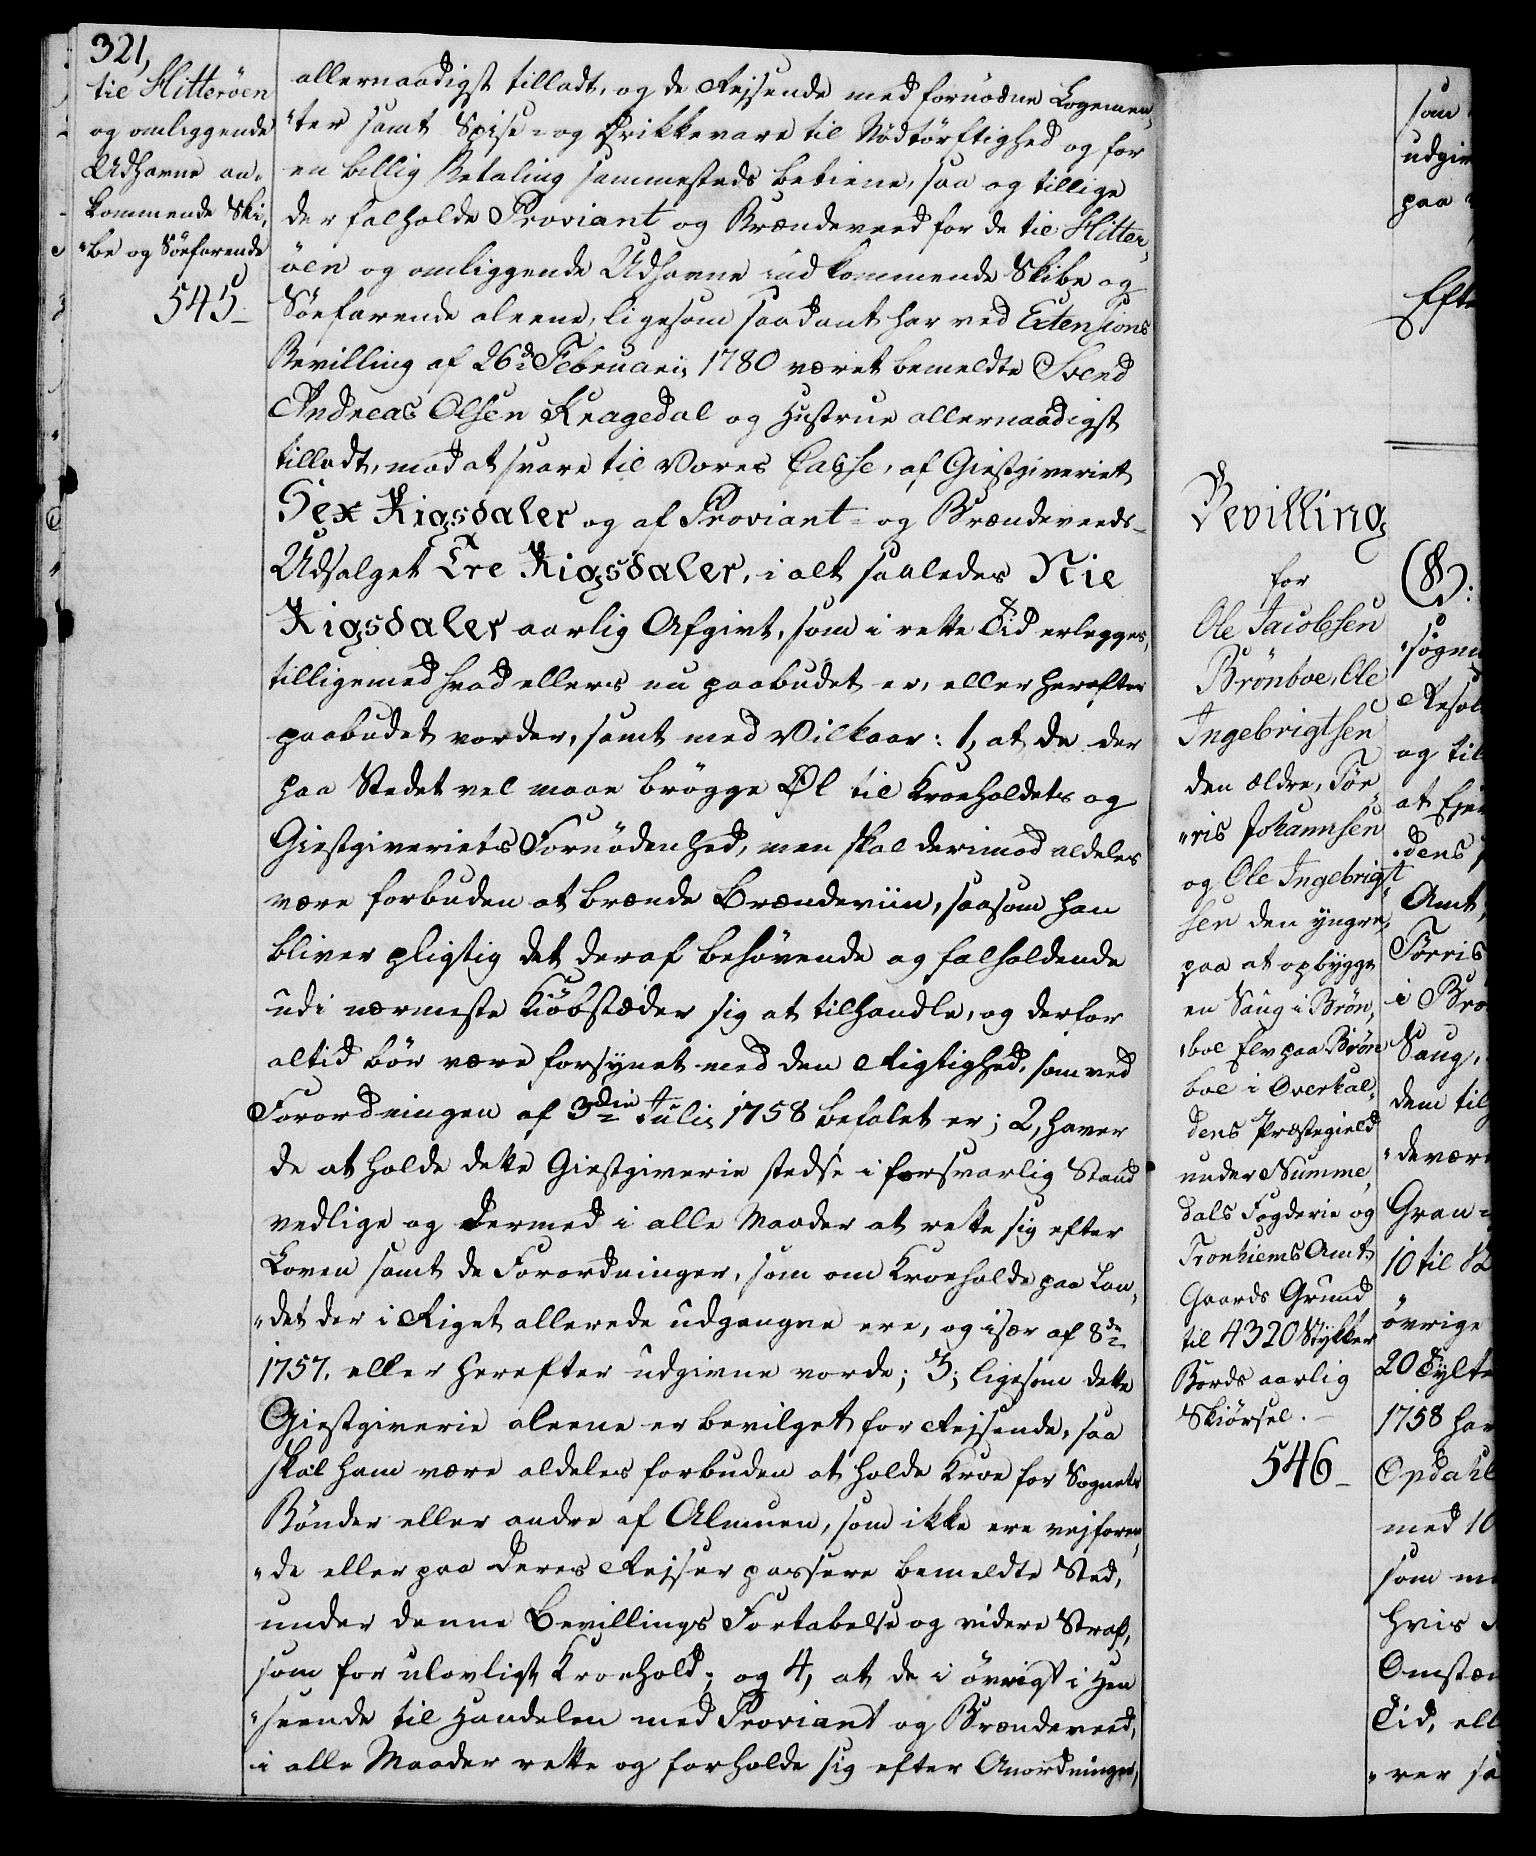 321,
til Hitteröen
og omliggende
Udhavne an,
kommende Ski,
"be og Söefarende
545_
allernaadigst tilladt, og de Rejsende med fornödne Logemen,
"ter samt Spise- og Drikkevare til Nödtörftighed og for
en billig Betaling sammesteds betiene, saa og tillige
der falholde Proviant og Brændeveed for de til Hitter,
öen og omliggende Udhavne indkommende Skibe og
Söefarende aleene, ligesom saadant har ved Extensions
Bevilling af 26de Februarii 1780 været bemeldte Svend
Andreas Olsen Kragedal og Hustrue allernaadigst
tilladt, mod at svare til Vores Casse, af Giestgiveriet
Sex Rigsdaler og af Proviant- og Brændeveeds-
Udsalget Tre Rigsdaler, i alt saaledes Nie
Rigsdaler aarlig Afgivt, som i rette Tid erlegges,
tilligemed hvad ellers nu paabudet er, eller herefter
paabudet vorder, samt med Vilkaar: 1, at de der
paa Stedet vel maae brögge Øl til Kroeholdets og
Giestgiveriets Fornödenhed, men skal derimod aldeles
være forbuden at brænde Brændeviin, saasom han
bliver pligtig det deraf behövende og falholdende
udi nærmeste Kiöbstæder sig at tilhandle, og derfor
altid bör være forsynet med den Rigtighed, som ved
Forordningen af 3die Julii 1758 befalet er; 2, haver
de at holde dette Giestgiverie stedse i forsvarlig Stand
vedlige og dermed i alle Maader at rette sig efter
Loven samt de Forordninger, som om Kroeholde paa Lan,
"det der i Riget allerede udgangne ere, og især af 8de
1757. eller herefter udgivne vorde; 3, ligesom dette
Giestgiverie aleene er bevilget for Rejsende, saa
skal ham være aldeles forbuden at holde Kroe for Sognets
Bönder eller andre af Almuen, som ikke ere vejfaren,
"de eller paa deres Rejser passere bemeldte Sted,
under denne Bevillings Fortabelse og videre Straf,
som for ulovligt Kroehold; og 4, at de i övrigt i Hen
"seende til Handelen med Proviant og Brændeveed,
i alle Maader rette og forholde sig efter Anordninger,
Bevilling
for
Ole Jacobsen
Brönboe, Ole
Ingebrigtsen
den ældre, Tör
"ris Johannsen
og Ole Ingebrigt
sen den yngre,
paa at opbygge
en Saug i Brön,
"boe Elv paa Brön
boe i Overhal,
dens Præstegield
under Numme,
dals Fogderie og
Tronhiems Amt,
Gaards Grund
til 4320 Stykker
Bords aarlig
Skiörsel._
546_
som
udgiv
paa
Efte
G:
sögne
Resol
og til
at Eje
"dens
Amt,
Törris
i Brö
Saug,
dem til
"de være
Gran
10 til 12
övrige
20 Tylte
1758 har
Opdahl
med 10
som me
hvis
Omstæn
Tid, ell
"rer sa